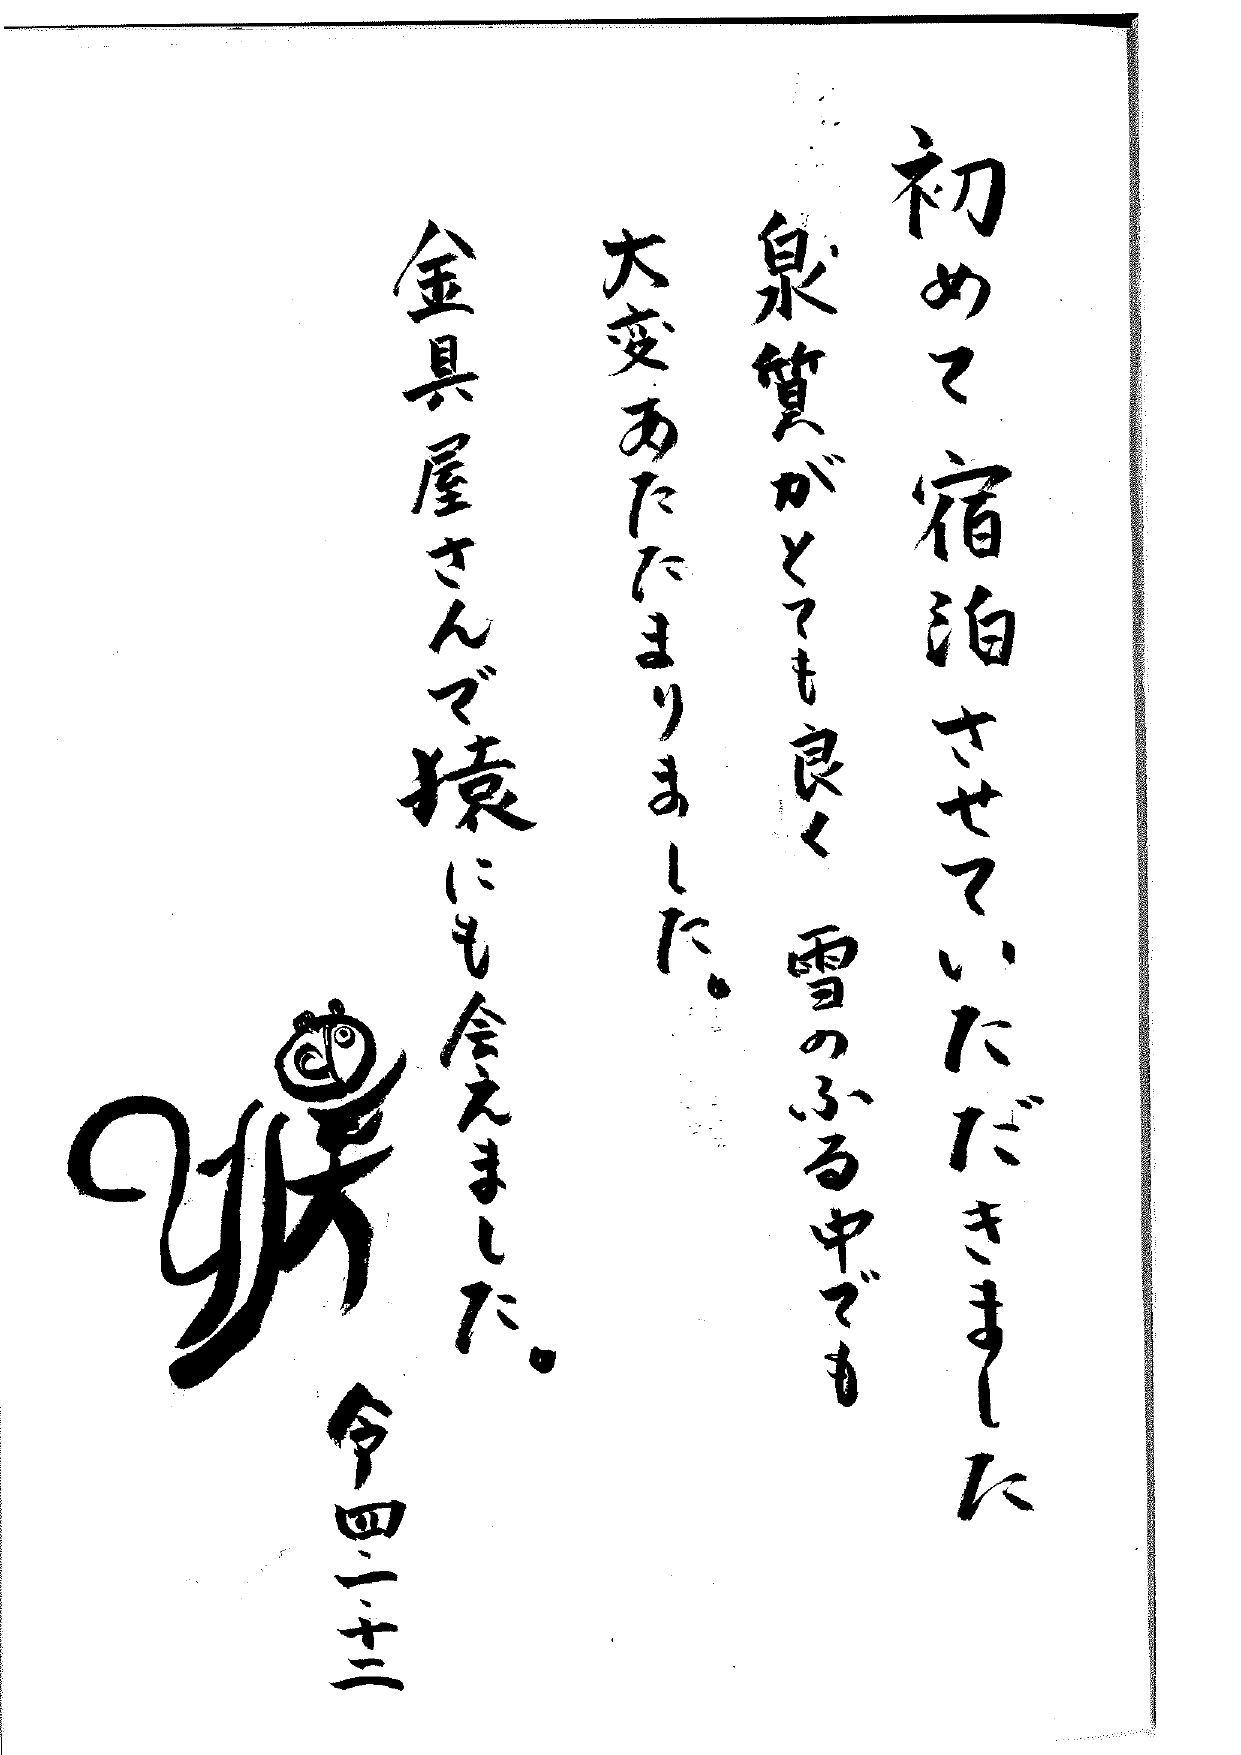 初めて宿泊させていただきました
泉質がとても良く 雪のふる中でも
大変あたたまりました。
金具屋さんで猿にも会えました。
令四・一・十二